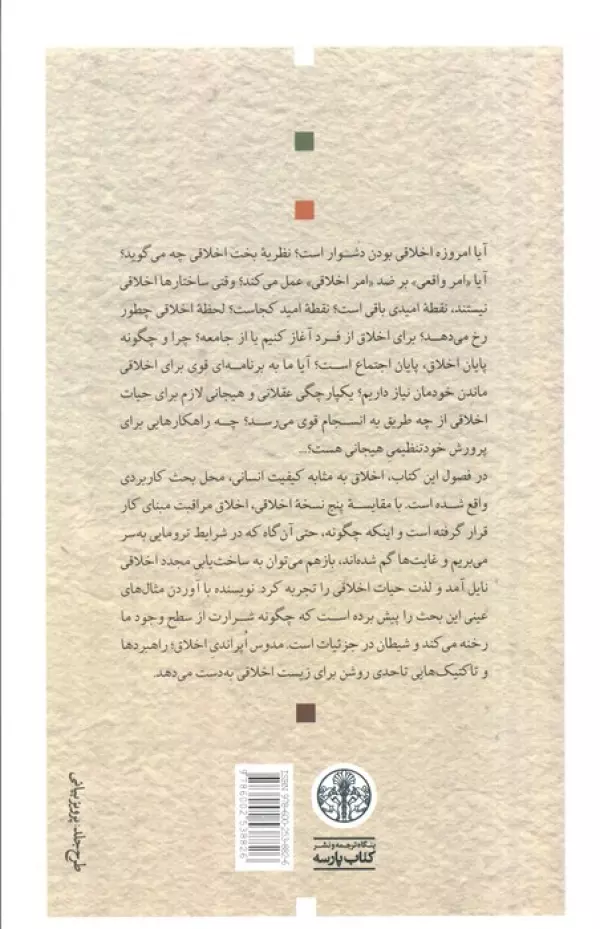 آیا امروزه اخلاقی بودن دشوار است؟ نظریهٔ بخت اخلاقی چه می‌گوید؟
آیا «امر واقعی» بر ضد «امر اخلاقی» عمل می‌کند؟ وقتی ساختارها اخلاقی
نیستند، نقطهٔ امیدی باقی است؟ نقطهٔ امید کجاست؟ لحظهٔ اخلاقی چطور
رخ می‌دهد؟ برای اخلاق از فرد آغاز کنیم یا از جامعه؟ چرا و چگونه
پایان اخلاق، پایان اجتماع است؟ آیا ما به برنامه‌ای قوی برای اخلاقی
ماندن خودمان نیاز داریم؟ یکپارچگی عقلانی و هیجانی لازم برای حیات
اخلاقی از چه طریق به انسجام قوی می‌رسد؟ چه راهکارهایی برای
پرورش خودتنظیمی هیجانی هست؟...
در فصول این کتاب، اخلاق به مثابه کیفیت انسانی، محل بحث کاربردی
واقع شده است. با مقایسهٔ پنج نسخهٔ اخلاقی، اخلاق مراقبت مبنای کار
قرار گرفته است و اینکه چگونه، حتی آن‌گاه که در شرایط ترومایی به‌سر
می‌بریم و غایت‌ها گم شده‌اند، بازهم می‌توان به ساخت‌یابی مجدد اخلاقی
نایل آمد و لذت حیات اخلاقی را تجربه کرد. نویسنده با آوردن مثال‌های
عینی این بحث را پیش برده است که چگونه شرارت از سطح وجود ما
رخنه می‌کند و شیطان در جزئیات است. مدوس اُپراندی اخلاق؛ راهبردها
و تاکتیک‌هایی تاحدی روشن برای زیست اخلاقی به‌دست می‌دهد.
طرح جلد: پرویز بیانی
ISBN 978-600-253-882-6
9786002538826
بنگاه ترجمه و نشر
کتاب پارسه